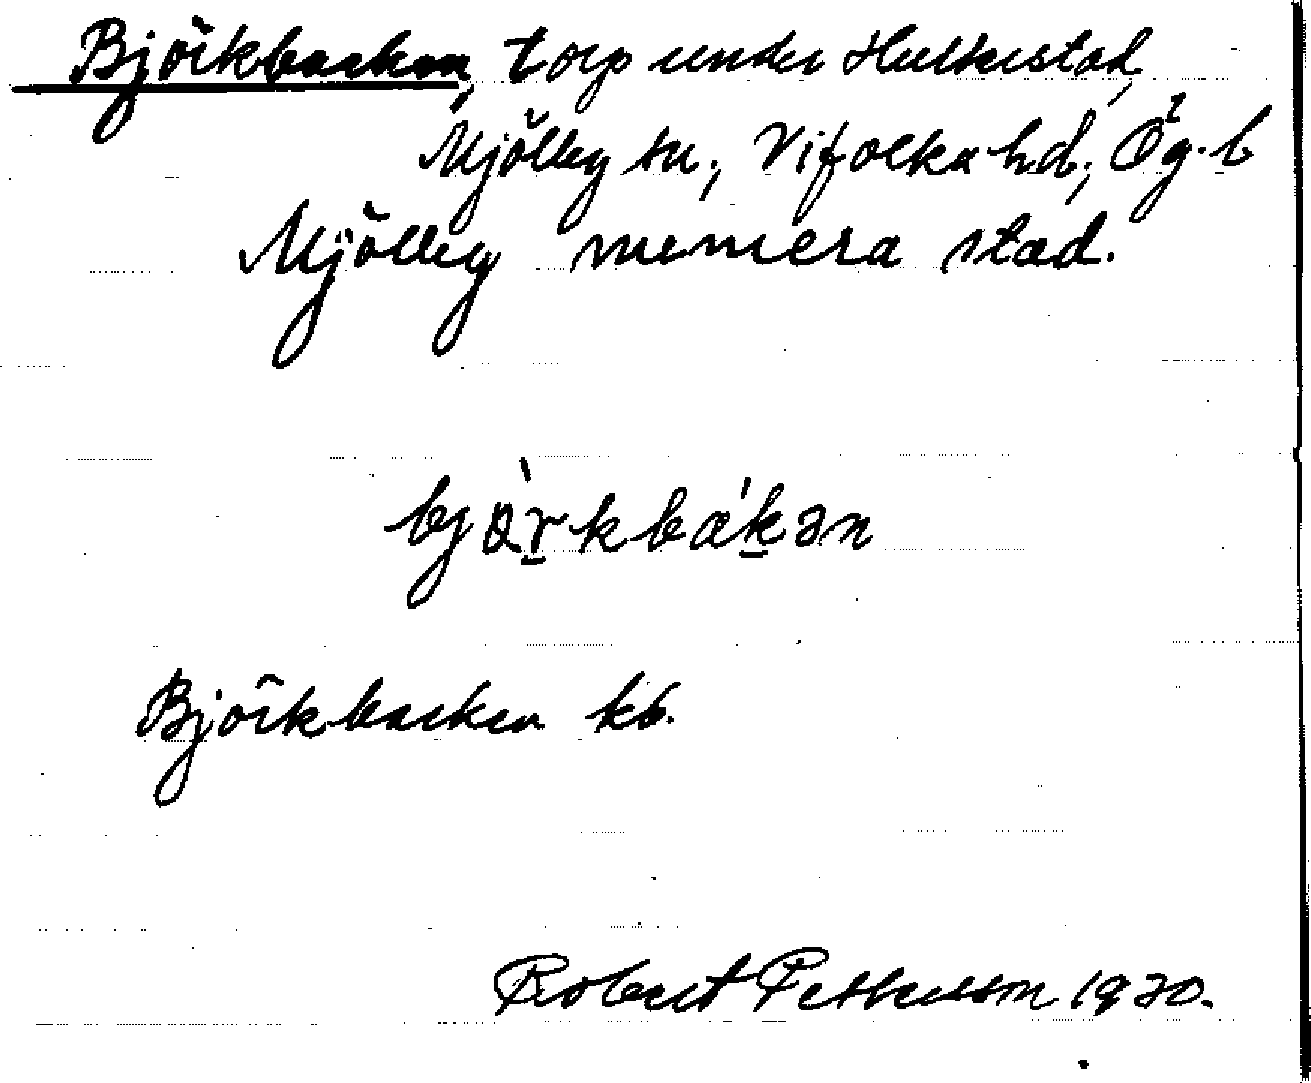 Björkbacken, torp under Hulterstad,
Mjölby sn., Vifolka hd., Ög. l
Mjölby numera stad.
bjàrkbákən
Björkbacken kb.
Robert Pettersson 1920.